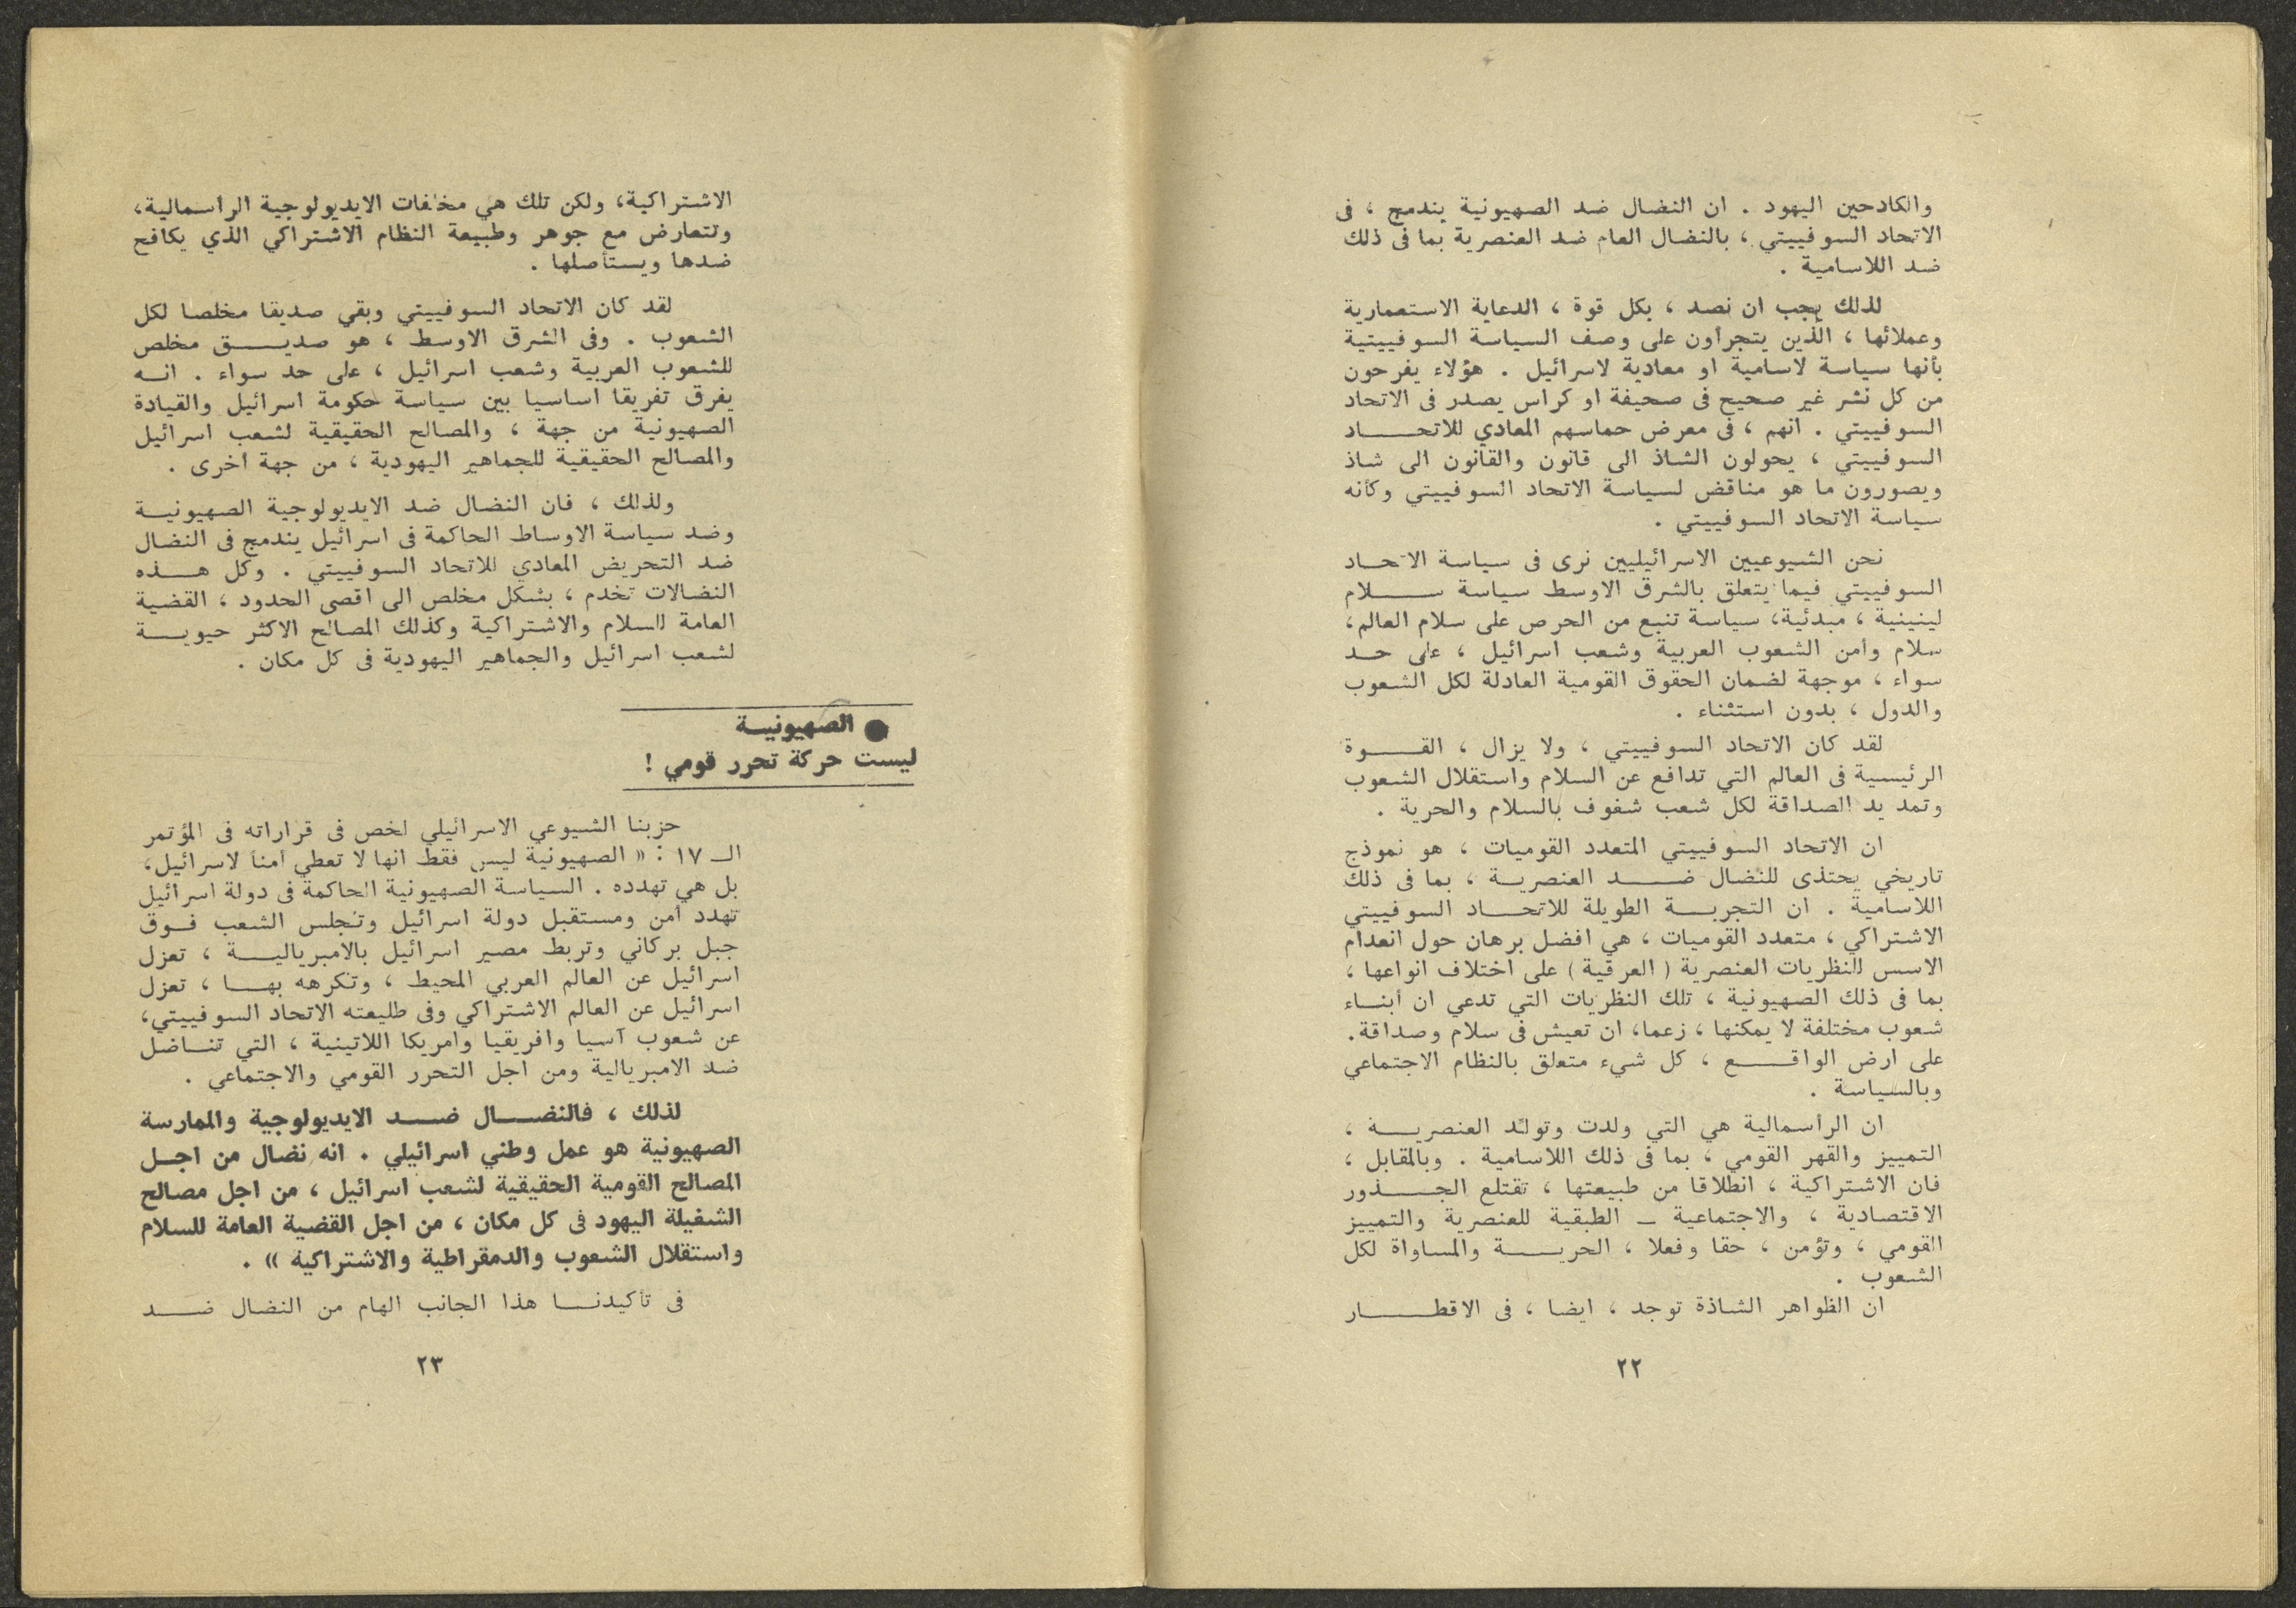 والكادحين اليهود . ان النضال ضد الصهيونية يندمج ، فى
الاتحاد السوفييتي ، بالنضال العام ضد العنصرية بما فى ذلك
ضد اللاسامية .
لذلك يجب ان نصد ، بكل قوة ، الدعاية الاستعمارية
وعملائها ، الذين يتجرأون على وصف السياسة السوفييتية
بأنها سياسة لاسامية او معادية لاسرائيل . هؤلاء يفرحون
من كل نشر غير صحيح فى صحيفة او كراس يصدر فى الاتحاد
السوفييتي . انهم ، فى معرض حماسهم المعادي للاتحـــــاد
السوفييتي ، يحولون الشاذ الى قانون والقانون الى شاذ
ويصورون ما هو مناقض لسياسة الاتحاد السوفييتي وكأنه
سياسة الاتحاد السوفييتي .
نحن الشيوعيين الاسرائيليين نرى فى سياسة الاتحـاد
السوفييتي فيما يتعلق بالشرق الاوسط سياسة ســــلام
لينينية ، مبدئية، سياسة تنبع من الحرص على سلام العالم،
سلام وامن الشعوب العربية وشعب اسرائيل ، على حــد
سواء ، موجهة لضمان الحقوق القومية العادلة لكل الشعوب
والدول ، بدون استثناء .
لقد كان الاتحاد السوفييتي ، ولا يزال ، القـــــوة
الرئيسية فى العالم التي تدافع عن السلام واستقلال الشعوب
وتمد يد الصداقة لكل شعب شغوف بالسلام والحرية .
ان الاتحاد السوفييتي المتعدد القوميات ، هو نموذج
تاريخي يحتذى للنضال ضـــــد العنصريــة ، بما فى ذلك
اللاسامية . ان التجربـــة الطويلة للاتحـــاد السوفييتي
الاشتراكي ، متعدد القوميات ، هي افضل برهان حول انعدام
الاسس للنظريات العنصرية ( العرقية ) على اختلاف انواعها ،
بما فى ذلك الصهيونية ، تلك النظريات التي تدعي ان أبنــاء
شعوب مختلفة لا يمكنها ، زعما، ان تعيش فى سلام وصداقة.
على ارض الواقـــــع ، كل شيء متعلق بالنظام الاجتماعي
وبالسياسة .
ان الرأسمالية هي التي ولدت وتولّد العنصريـــة ،
التمييز والقهر القومي ، بما فى ذلك اللاسامية . وبالمقابل ،
فان الاشتراكية ، انطلاقا من طبيعتها ، تقتلع الجـــــذور
الاقتصادية ، والاجتماعية ــ الطبقية للعنصرية والتمييز
القومي ، وتؤمن ، حقا وفعلا ، الحريـــــة والمساواة لكل
الشعوب .
ان الظواهر الشاذة توجد ، ايضا ، فى الاقطـــــار
٢٢
الاشتراكية، ولكن تلك هي مخلفات الايديولوجية الراسمالية،
وتتعارض مع جوهر وطبيعة النظام الاشتراكي الذي يكافح
ضدها ويستأصلها .
لقد كان الاتحاد السوفييتي وبقي صديقا مخلصا لكل
الشعوب . وفى الشرق الاوسط ، هو صديـــــق مخلص
للشعوب العربية وشعب اسرائيل ، على حد سواء . انــه
يفرق تفريقا اساسيا بين سياسة حكومة اسرائيل والقيادة
الصهيونية من جهة ، والمصالح الحقيقية لشعب اسرائيل
والمصالح الحقيقية للجماهير اليهودية ، من جهة اخرى .
ولذلك ، فان النضال ضد الايديولوجية الصهيونيــة
وضد سياسة الاوساط الحاكمة فى اسرائيل يندمج فى النضال
ضد التحريض المعادي للاتحاد السوفييتي . وكل هـــذه
النضالات تخدم ، بشكل مخلص الى اقصى الحدود ، القضية
العامة للسلام والاشتراكية وكذلك المصالح الاكثر حيويــة
لشعب اسرائيل والجماهير اليهودية فى كل مكان .
● الصهيونيــة
ليست حركة تحرر قومي !
حزبنا الشيوعي الاسرائيلي لخص فى قراراته فى المؤتمر
الـ ١٧ : « الصهيونية ليس فقط انها لا تعطي أمناً لاسرائيل،
بل هي تهدده . السياسة الصهيونية الحاكمة فى دولة اسرائيل
تهدد أمن ومستقبل دولة اسرائيل وتجلس الشعب فــوق
جبل بركاني وتربط مصير اسرائيل بالامبرياليـــة ، تعزل
اسرائيل عن العالم العربي المحيط ، وتكرهه بهـــا ، تعزل
اسرائيل عن العالم الاشتراكي وفى طليعته الاتحاد السوفييتي،
عن شعوب آسيا وافريقيا وامريكا اللاتينية ، التي تنــاضل
ضد الامبريالية ومن اجل التحرر القومي والاجتماعي .
لذلك ، فالنضـــال ضـــد الايديولوجية والممارسة
الصهيونية هو عمل وطني اسرائيلي . انه نضال من اجــل
المصالح القومية الحقيقية لشعب اسرائيل ، من اجل مصالح
الشغيلة اليهود فى كل مكان ، من اجل القضية العامة للسلام
واستقلال الشعوب والدمقراطية والاشتراكية » .
فى تأكيدنــا هذا الجانب الهام من النضال ضـــد
٢٣